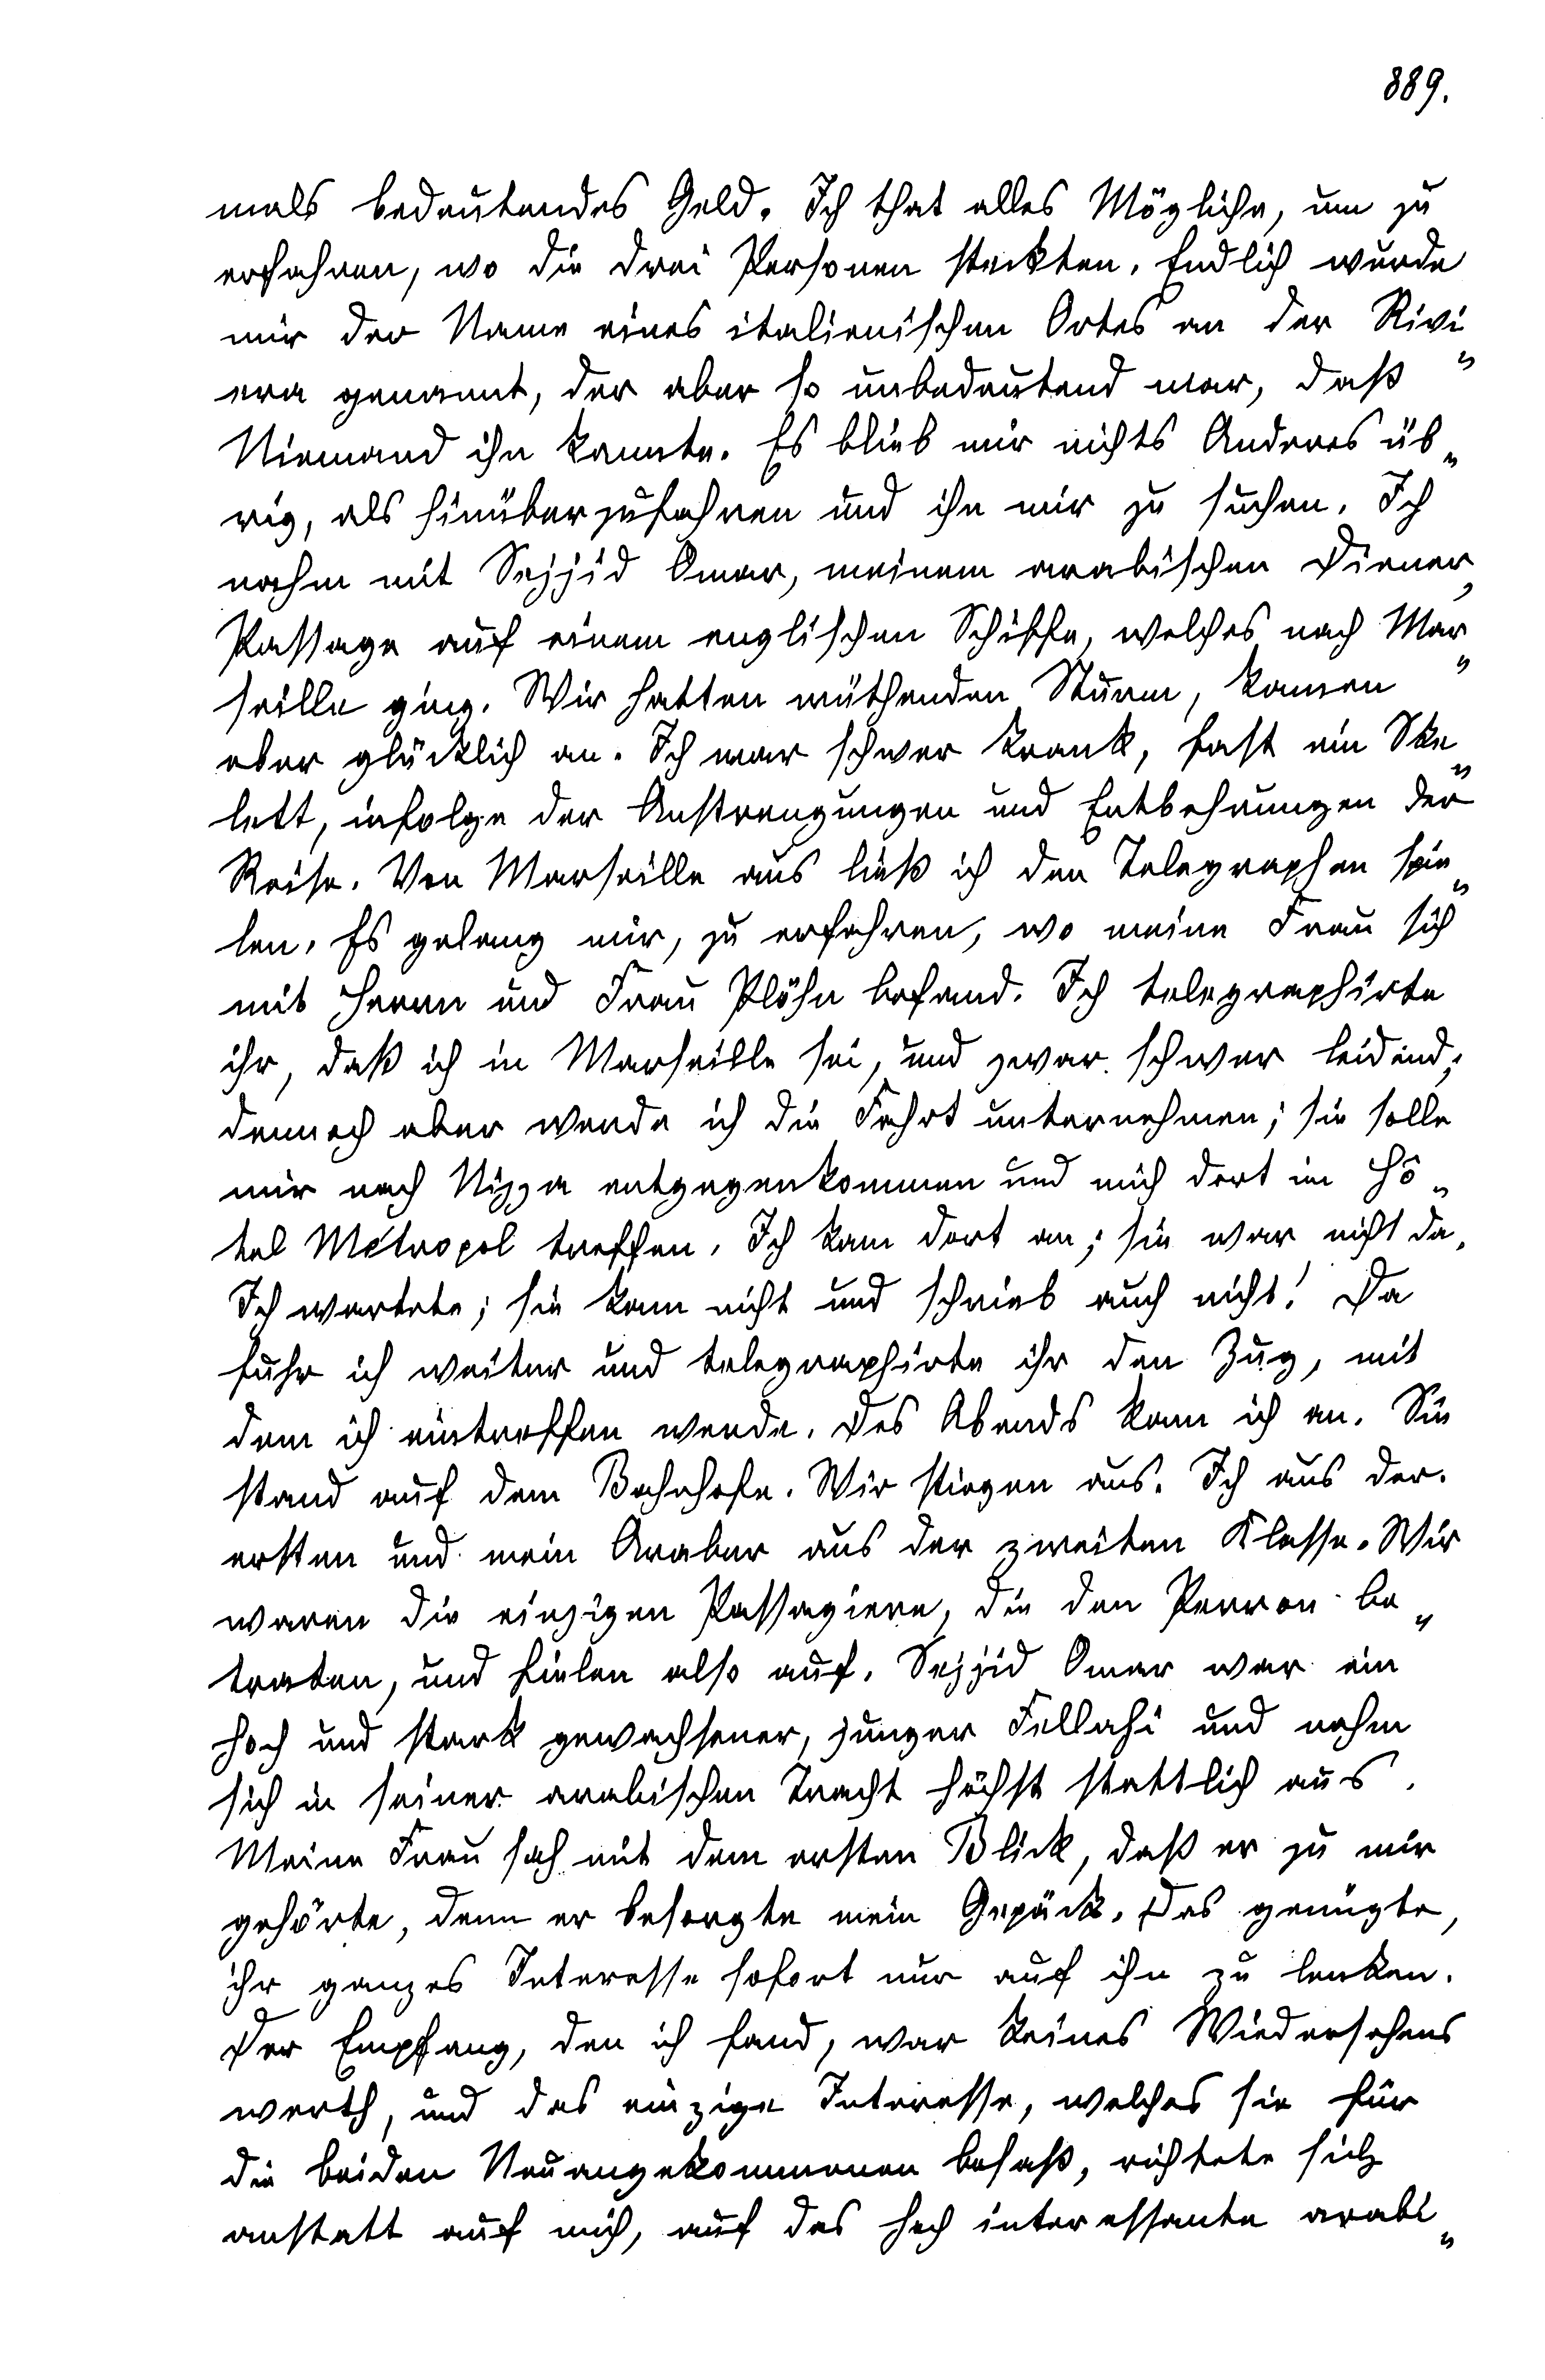 889.
mals bedeutendes Geld. Ich that alles Mögliche, um zu
erfahren, wo die drei Personen steckten. Endlich wurde
mir der Name eines italienischen Ortes an der Rivi„
era genannt, der aber so unbedeutend war, daß
Niemand ihn kannte. Es blieb mir nichts Anderes üb„
rig, als hinüberzufahren und ihn mir zu suchen. Ich
nahm mit Sejjid Omar, meinem arabischen Diener,
Passage auf einem englischen Schiffe, welches nach Mar„
seille ging. Wir hatten wüthenden Sturm, kamen
aber glücklich an. Ich war schwer krank, fast ein Ske„
lett, infolge der Anstrengungen und Entbehrungen der
Reise. Von Marseille aus ließ ich den Telegraphen spie„
len. Es gelang mir, zu erfahren, wo meine Frau sich
mit Herrn und Frau Plöhn befand. Ich telegraphirte
ihr, daß ich in Marseille sei, und zwar schwer leidend;
dennoch aber werde ich die Fahrt unternehmen; sie solle
mir nach Nizza entgegenkommen und mich dort im Hô„
tel Métropol treffen. Ich kam dort an; sie war nicht da.
Ich wartete; sie kam nicht und schrieb auch nicht! Da
fuhr ich weiter und telegraphirte ihr den Zug, mit
dem ich eintreffen werde. Des Abends kam ich an. Sie
stand auf dem Bahnhofe. Wir stiegen aus. Ich aus der
ersten und mein Araber aus der zweiten Klasse. Wir
waren die einzigen Passagiere, die den Perron be„
traten, und fielen also auf. Sejjid Omar war ein
hoch und stark gewachsener, junger Fellahi und nahm
sich in seiner arabischen Tracht höchst stattlich aus.
Meine Frau sah mit dem ersten Blick, daß er zu mir
gehörte, denn er besorgte mein Gepäck. Das genügte,
ihr ganzes Interesse sofort nur auf ihn zu lenken.
Der Empfang, den ich fand, war keines Wiedersehens
werth, und das einzige Interesse, welches sie für
die beiden Neuangekommenen besaß, richtete sich
anstatt auf mich, auf das hoch interessante arabi„